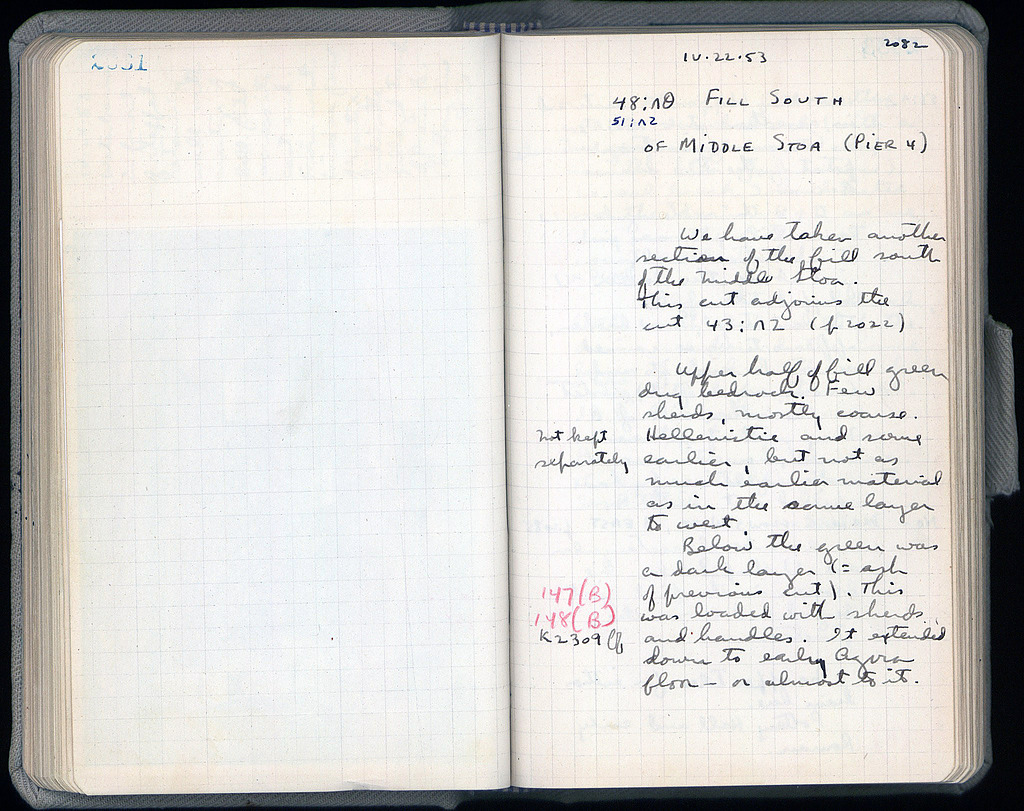 2081
2082
IV.22.53
48:ΛΘ FILL SOUTH
51:ΛZ
OF MIDDLE STOA (PIER 4)
We have taken another
section of the fill south
of the Middle Stoa.
This cut adjoins the
cut 43:ΛZ (p 2022)
Upper half of fill green
dug bedrock. Few
sherds, mostly coarse.
not kept Hellenistic and some
separately earlier, but not as
much earlier material
as in the same layer
to west.
Below the green was
a dark layer (= ash
147(B) of previous cut). This
148(B) was loaded with sherds
K2309 and handles. It extended
down to early Agora
floor – or almost to it.